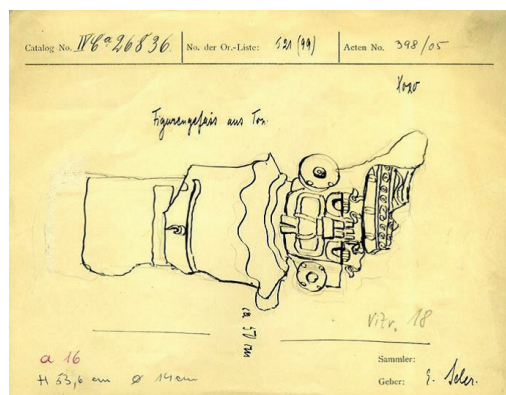 Catalog No. IV Ca 26836. No. der Or.-Liste: 121 (99) Acten No. 398/05
Xoxo
Figurengefäss aus Ton.
ca 57 cm
Vitr. 18
a 16
H 53,6 cm Ø 14cm
Sammler:
Geber: E. Seler.